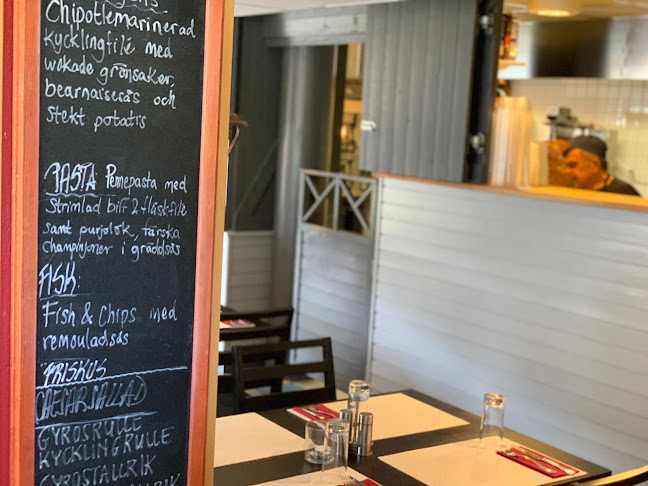 Chipotlemarinerad
kycklingfilé med
wokade grönsaker,
bearnaisesås och
stekt potatis
PASTA: Pennepasta med
strimlad biff & fläskfilé
samt purjolök, färska
champinjoner i gräddsås
FISK:
Fish & Chips med
remouladsås
PRISKUS
CAESARSALLAD
GYROSRULLE
KYCKLINGRULLE
GYROSTALLRIK